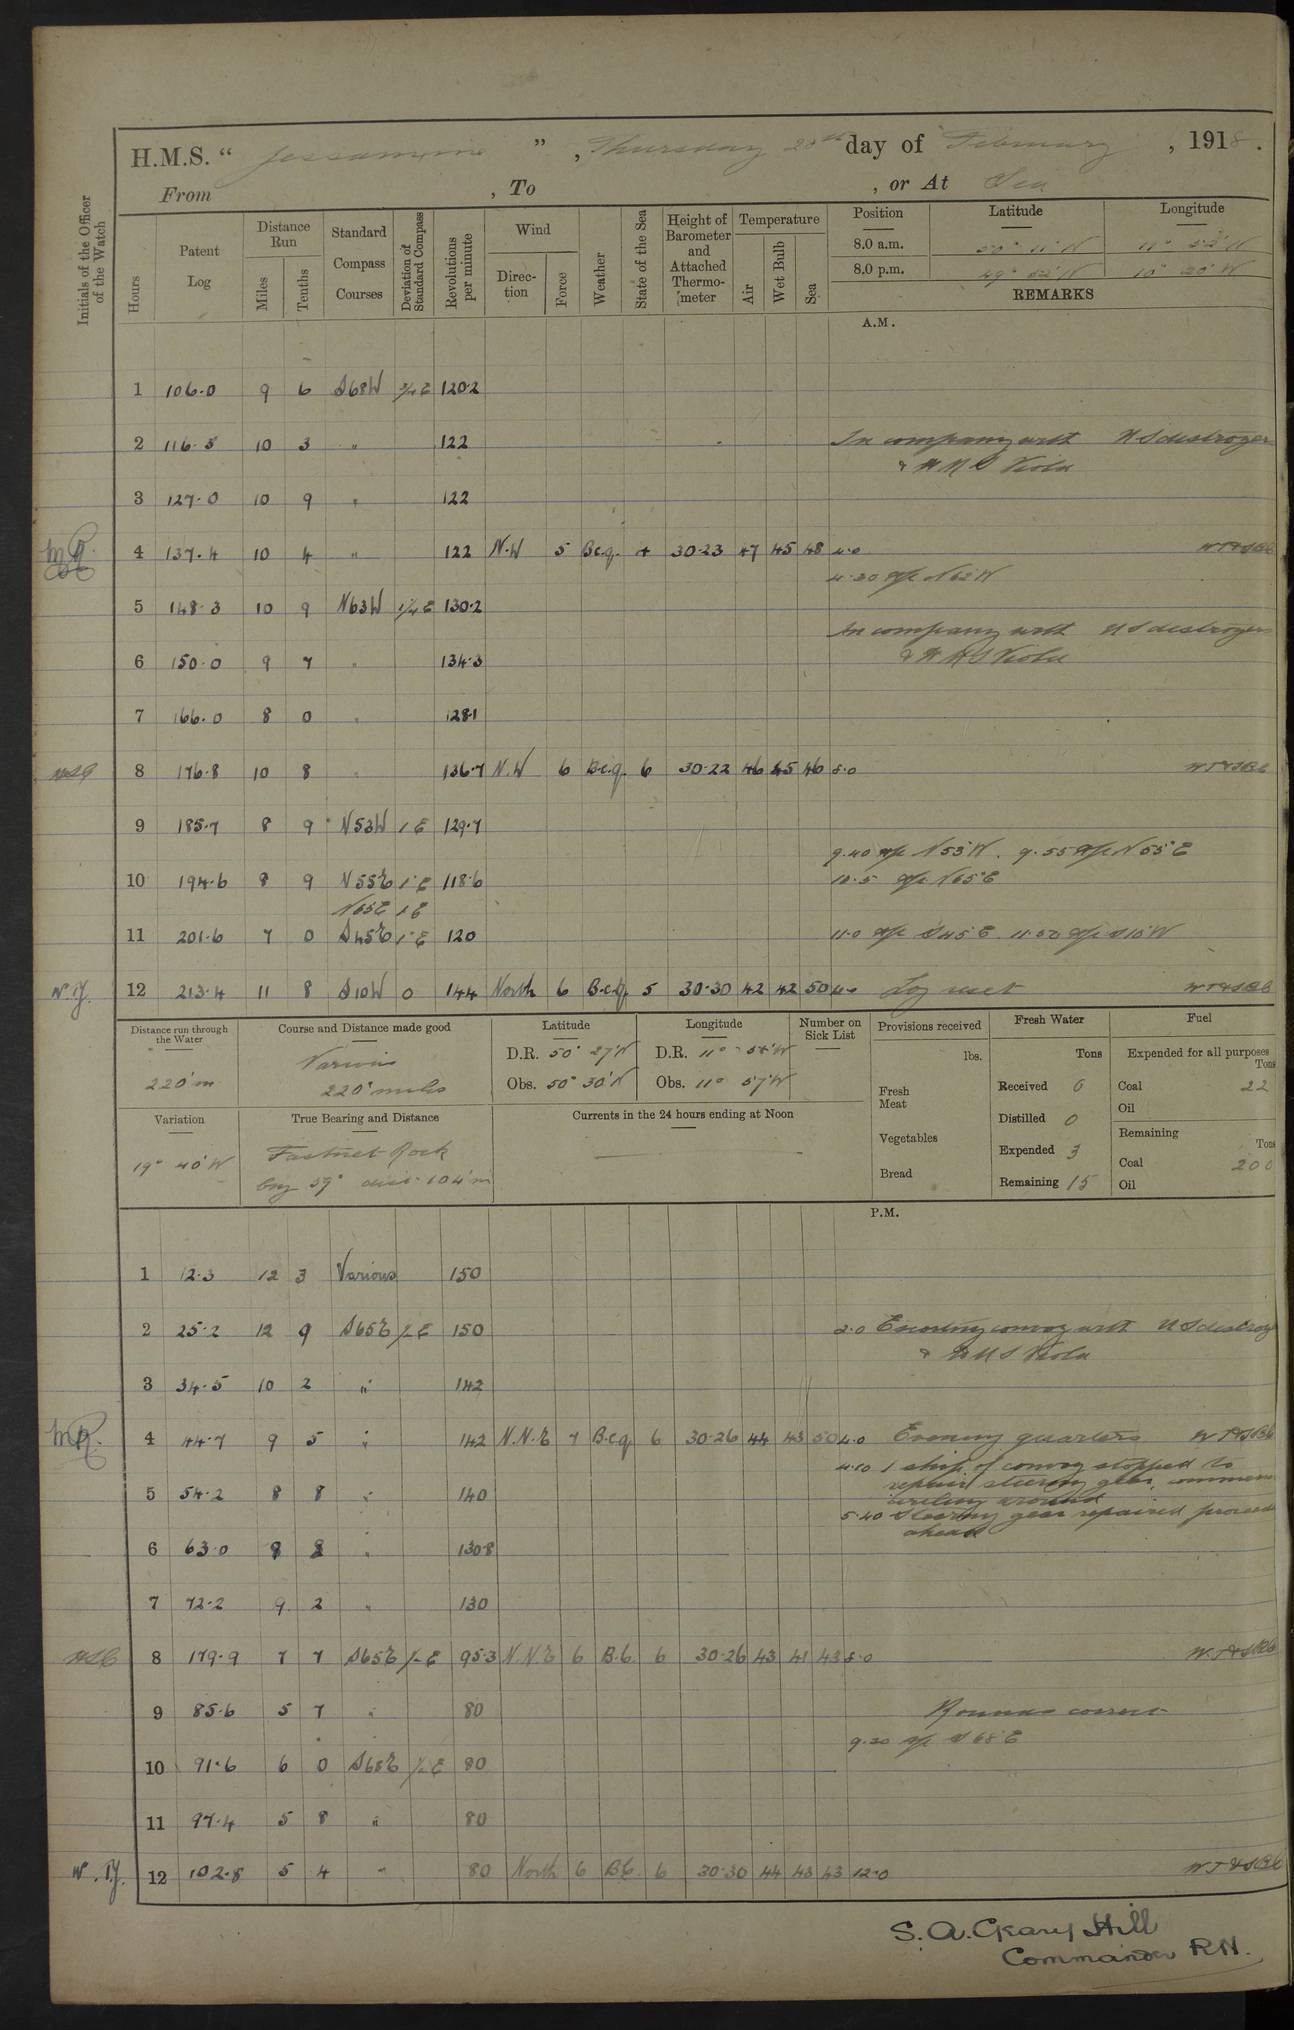 H.M.S. “ Jessamine ” , Thursday 28th day of February , 1918.
From , To , or At Sea
Initials of the Officer of the Watch
Hours
Patent Log
Distance Run
Miles
Tenths
Standard Compass Courses
Deviation of Standard Compass
Revolutions per minute
Wind
Direction
Force
Weather
State of the Sea
Height of Barometer and Attached Thermometer
Temperature
Air
Wet Bulb
Sea
Position Latitude Longitude
8.0 a.m. 50° 11' N 11° 52' W
8.0 p.m. 49° 52' N 10° 20' W
REMARKS
A.M.
1 106.0 9 6 S68W 3/4 E 120.2
2 116.3 10 3 " 122 In company with U S destroyer
& H M S Viola
3 127.0 10 9 " 122
4 137.4 10 4 " 122 N.W 5 B.c.q. 4 30.23 47 45 48 4.0 W T & S B C
4.30 a/c N 62 W
5 148.3 10 9 N63W 1 1/4 E 130.2
In company with U S destroyer
6 150.0 9 7 " 134.3 & H M S Viola
7 166.0 8 0 " 128.1
8 176.8 10 8 " 136.7 N.W 6 B.c.q. 6 30.22 46 45 46 8.0 W T & S B C
9 185.7 8 9 N53W 1 E 129.7
9.40 a/c N 53° W. 9.55 a/c N 55° E
10 194.6 8 9 N55E 1° E 118.6 10.5 a/c N65°E
N65E 1 E
11 201.6 7 0 S45E 1° E 120 11.0 a/c S45°E. 11.50 a/c S10°W
N.J. 12 213.4 11 8 S10W 0 144 North 6 B.c.q. 5 30.30 42 42 50 Log reset W T & S B C
Distance run through the Water
220' m
Course and Distance made good
Various
220' miles
Latitude
D.R. 50° 27' N
Obs. 50° 30' N
Longitude
D.R. 11° 58' W
Obs. 11° 57' W
Number on Sick List
Provisions received
lbs.
Fresh Meat
Vegetables
Bread
Fresh Water
Tons
Received 0
Distilled 0
Expended 3
Remaining 15
Fuel
Expended for all purposes
Tons
Coal 22
Oil
Remaining
Tons
Coal 200
Oil
Variation
19° 40' W
True Bearing and Distance
Fastnet Rock
brg 59° dist 104' m
Currents in the 24 hours ending at Noon
P.M.
1 12.3 12 3 Various 150
2 25.2 12 9 S65E 150 2.0 Escorting convoy with U S destroy
& H M S Viola
3 34.5 10 2 " 142
4 44.7 9 5 " 142 N.N.E 7 B.c.q 6 30.26 44 43 50 4.0 Evening quarters W T & S B C
4.10 1 ship of convoy stopped to
repair steering gear, commen
circling around
5 54.2 8 8 " 140
5.40 Steering gear repaired proceed
ahead
6 63.0 8 8 " 130.8
7 72.2 9 2 " 130
8 179.9 7 7 S65E 95.3 N.N.E 6 B.C. 6 30.26 43 41 43 8.0 W.T & S B C
9 85.6 5 7 " 80 Rounds correct
9.20 a/c S 68° E
10 91.6 6 0 S68E 80
11 97.4 5 8 " 80
N.J. 12 102.8 5 4 " 80 North 6 B.C. 6 30.30 44 43 43 12.0 W T & S B C
S. A. Geary Hill
Commander R.N.